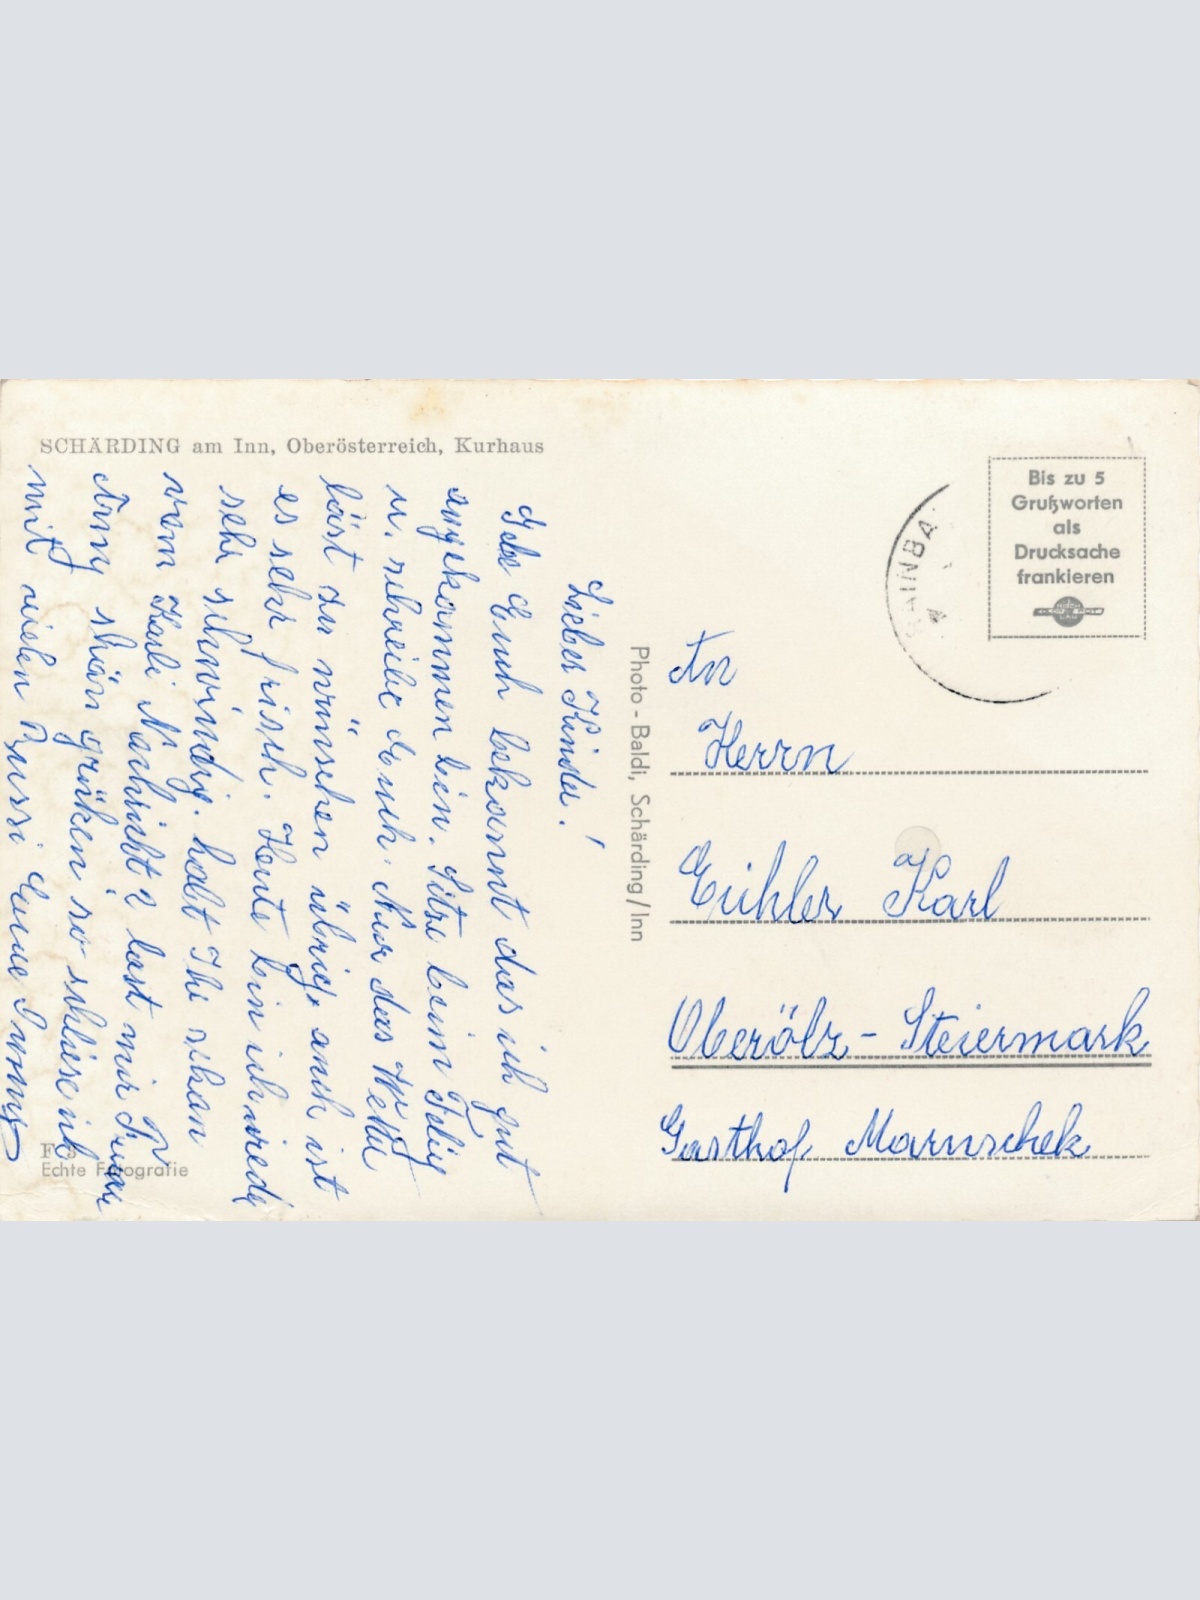 SCHÄRDING am Inn, Oberösterreich, Kurhaus
Liebe Kinder!
Gebe Euch bekannt das ich gut
angekommen bin. Sitze beim
u. schreibe Euch. Nur das Wetter
läst zu wünschen übrig, auch ist
es sehr frisch. Heute bin ich wieder
sehr schwindig. habt Ihr schon
vom Karli Nachricht? last mir
schön grüßen so schliese ich
mit vielen Bussi Eure
F 3
Echte Fotografie
Photo - Baldi, Schärding/Inn
Bis zu 5
Grußworten
als
Drucksache
frankieren
An
Herrn
Eichler Karl
Oberölz - Steiermark
Gasthof Marnschek